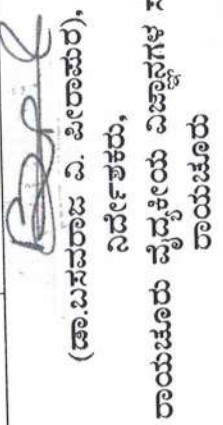 (ಡಾ.ಬಸವರಾಜ ವಿ. ಪೀರಾಮರ),
ನಿರ್ದೇಶಕರು,
ರಾಯಚೂರು ವೈದ್ಯಕೀಯ ವಿಜ್ಞಾನಗಳ
ರಾಯಚೂರು